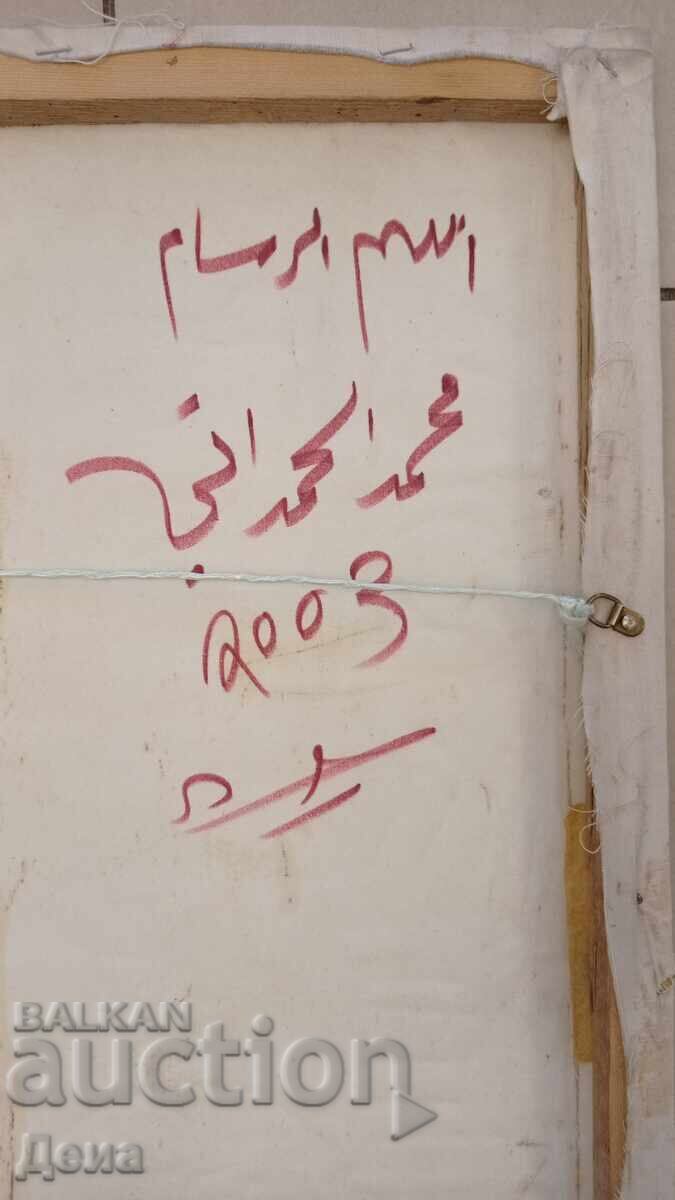 اسم الرسام
محمد الحمداني
2003
BALKAN
auction
Деиа